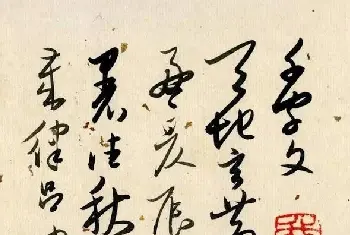 千字文
天地玄黄
盈昃辰
暑往秋
歲律呂